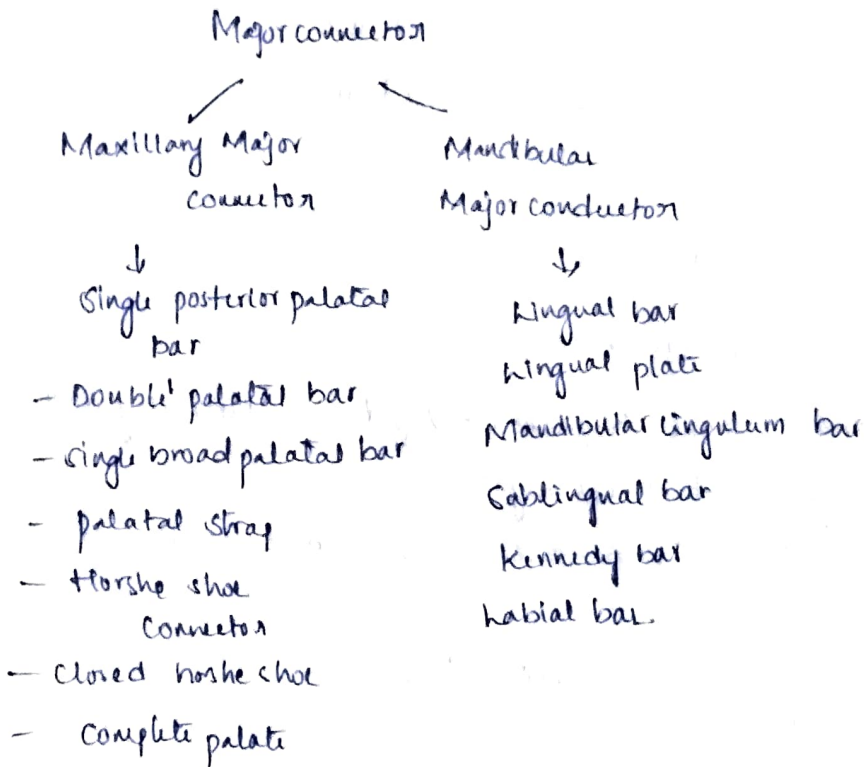 Major connector
Maxillary Major
connector
Mandibular
Major conductor
Single posterior palatal
bar
- Double palatal bar
- single broad palatal bar
- palatal strap
- Horshe shoe
connector
- Closed horshe shoe
- Complete palate
Lingual bar
Lingual plate
Mandibular cingulum bar
Sablingual bar
Kennedy bar
Labial bar